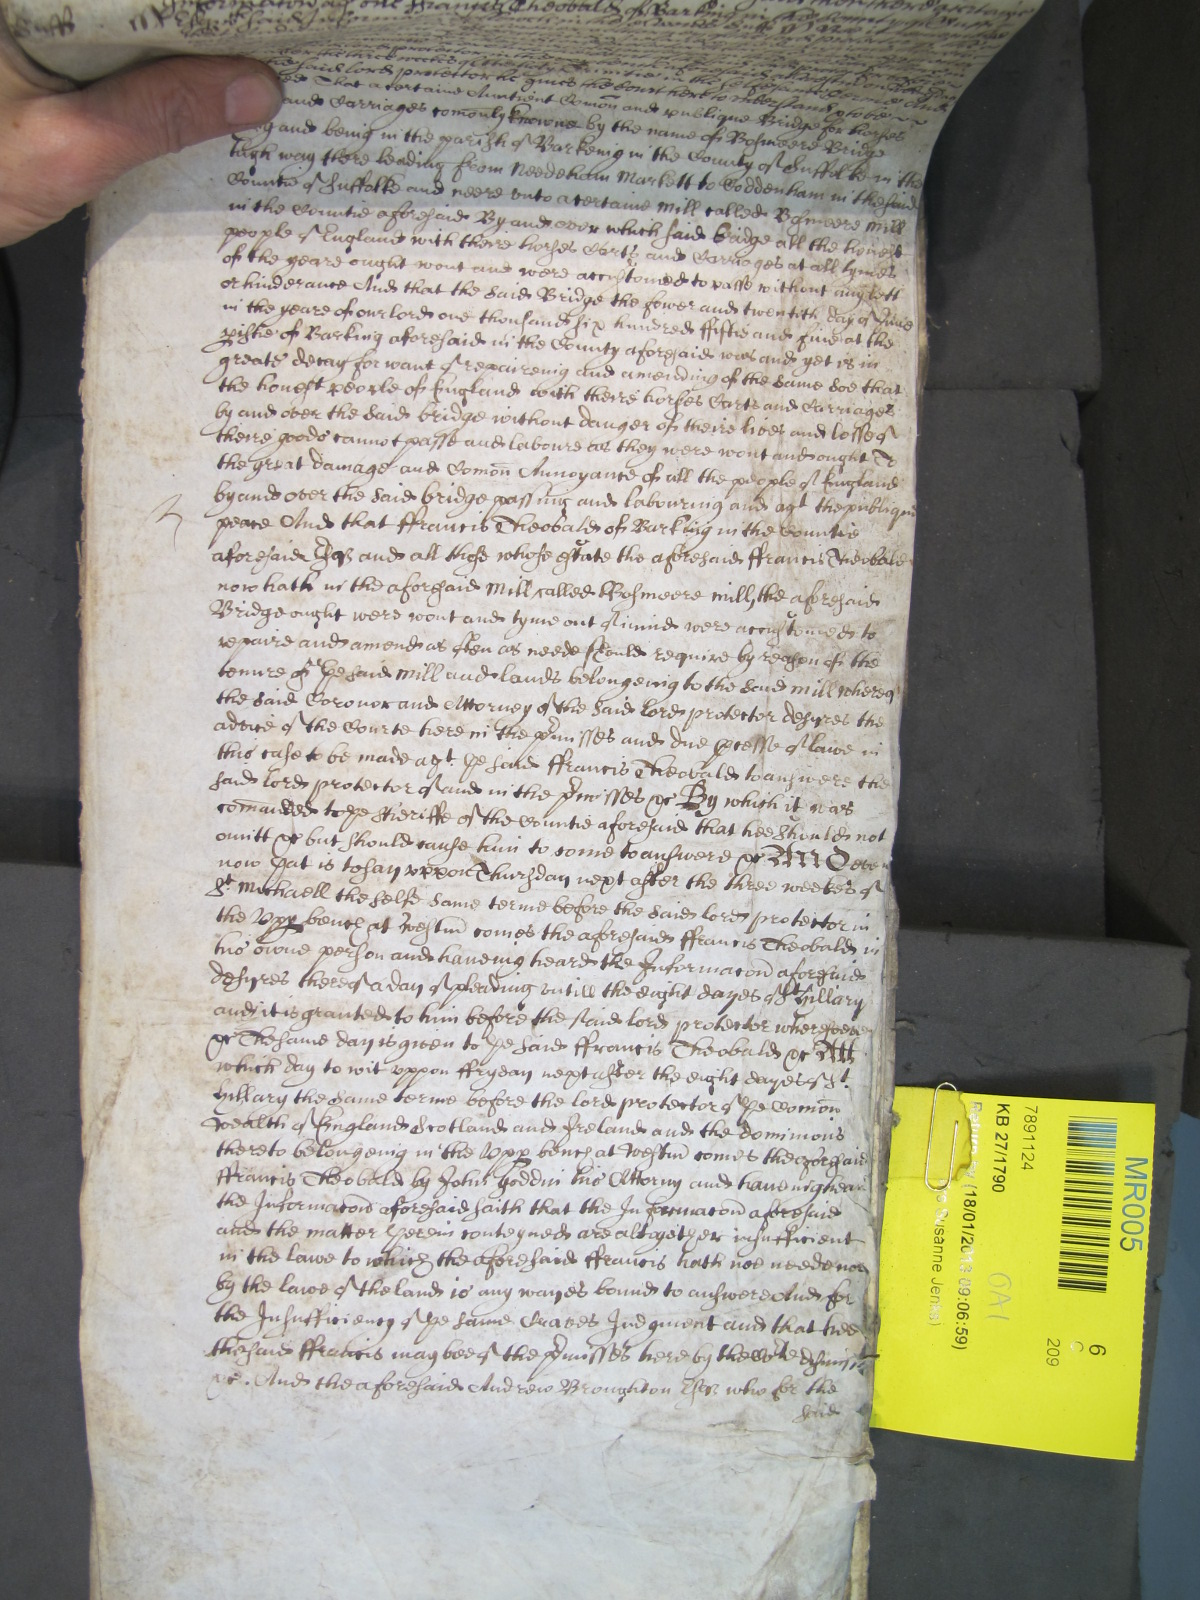 Suff
Informacon agt one Francis Theobald of Barking
the said lord protector he gives the court here to understand
That a certaine Auntient Comon and publique Bridge for horses
and Carriages comonly knowne by the name of Bosmeere Bridge
and being in the parish of Barkeing in the County of Suffolke in the
high way there leading from Needeham Markett to Coddenham in the said
Countie of Suffolke and neere vnto a certaine Mill called Bosmeere Mill
in the Countie aforesaid By and over which said bridge all the honest
people of England with there horses Carts and Carriages at all tymes
of the yeare ought wont and were accustomed to passe without any lett
or hinderance And that the said Bridge the fower and twentith day of June
in the yeare of our lord one thousand six hundred ffiftie and five at the
pishe of Barking aforesaid in the County aforesaid was and yet is in
greate decay for want of repaireing and amending of the same soe that
the honest people of England with theire horses Carts and Carriages
by and over the said bridge without danger of theire lives and losse of
theire goods cannot passe and laboure as they were wont and ought To
the great damage and Comon Annoyance of all the people of England
by and over the said bridge passing and labouring and agt the publique
peace And that ffrancis Theobald of Barking in the Countie
aforesaid Esqr and all those whose estate the aforesaid ffrancis Theobald
now hath in the aforesaid Mill called Bosmeere mill, the aforesaid
Bridge ought were wont and tyme out of mind were accustomed to
repaire and amend as often as neede should require by reason of the
tenure of ye said mill and lands belongeing to the said mill whereof
the said Coronor and Attorney of the said lord protector desyres the
advice of the Courte here in the pmisses and due pcesse of lawe in
this case to be made agt ye said ffrancis Theobald to answere the
said lord protector of and in the pmisses &c By which it was
comanded to ye Sheriffe of the Countie aforesaid that hee should not
omitt &c but should cause him to come to answere &c And
now yat is to say vppon Thursday next after the three weekes of
St Michaell the selfe same terme before the said lord protector in
the Vpp bench at Westm comes the aforesaid ffrancis Theobald in
his owne person and haveing heard the Informacon aforesaid
desyres thereof a day of pleading vntill the eight dayes of St Hillary
and it is granted to him before the said lord protector wheresoever
&c The same day is given to ye said ffrancis Theobald &c Att
which day to wit vppon ffryday next after the eight dayes of St
Hillary the same terme before the lord protector of ye Comon
wealth of England Scotland and Ireland and the dominions
thereto belongeing in the Vpp bench at Westm comes the aforesaid
ffrancis Theobald by John Goddin his Attorny and haveing heard
the Informacon aforesaid saith that the Informacon aforesaid
and the matter therein conteyned are altogether insufficient
in the lawe to which the aforesaid ffrancis hath noe neede nor
by the lawe of the land is any wayes bound to answere And for
the Insufficiency of ye same Craves Judgment and that hee
the said ffrancis may bee of the pmisses here by the Corte dismist
&c. And the aforesaid Andrew Broughton Esqr who for the
said
MR005
7891124
KB 27/1790
Return by (18/01/2013 09:06:59)
Susanne Jenks)
OA1
6
C
209